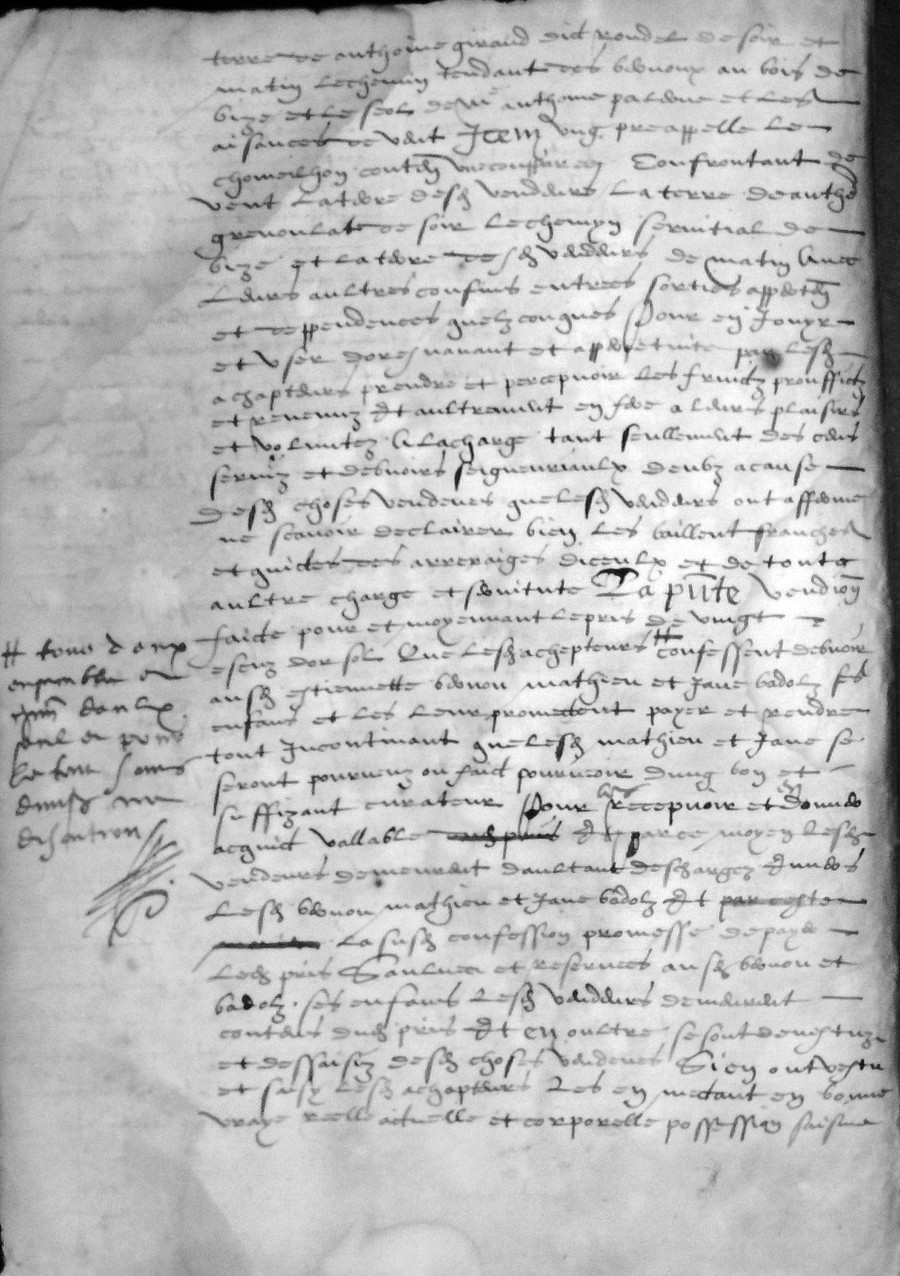 terre de anthoine giraud dict rondel de soir et
matin le chemin tendant des bounoux au bois de
bize et le seol de anthoine et les
aisances de vent Item ung pre appelle le
chomeilhon Confrontant de
vent la terre desd vendeurs la terre de anthe
grenoulat de soir le chemyn servitial de
bize et la terre desd vendeurs de matin Avec
leurs aultres confins entrees sorties
et deppendences quelzconques Pour en Jouyr
et user doresnavant et a perpetuite par lesd
achapteurs prendre et percepvoir les fruictz prouffictz
et revenuz Et aultrement en fere a leurs plaisirs
et voluntez A la charge tant seullement des cens
serviz et debvoirs seigneuriaulx deubz a cause
desd choses vendues que lesd vendeurs ont afferme
ne scavoir declairer bien les baillent franches
et quictes des arreraiges diceulx et de toute
aultre charge et servitute La pnte vendion
faicte pour et moyennant le pris de vingt
escuz dor sol Que lesd achepteurs # confessent debvoir
ausd estiennette mathieu et Jane badolz ses
enfans et les leur promectent payer et rendre
tout Incontinant que lesd mathieu et Jane se
seront pourveuz ou faict pourveoir dung bon et
suffizant curateur Pour recepvoir et donner
acquict vallable Et par ce moyen lesd
vendeurs demeurent daultant deschargez Envers
lesd mathieu et Jane badolz Et par ceste
la susd confession promesse de payer
led pris Saulvee et reservees ausd et
badolz ses enfans lesd vendeurs demeurent
contens dud pris Et en oultre se sont devestuz
et dessaisiz desd choses vendues Si en ont vestu
et saisy lesd achapteurs Les en mectant en bonne
vraye reelle actuelle et corporelle possession saisine
# tous deux
ensemble et
deulx
seul et pour
le tout soubz